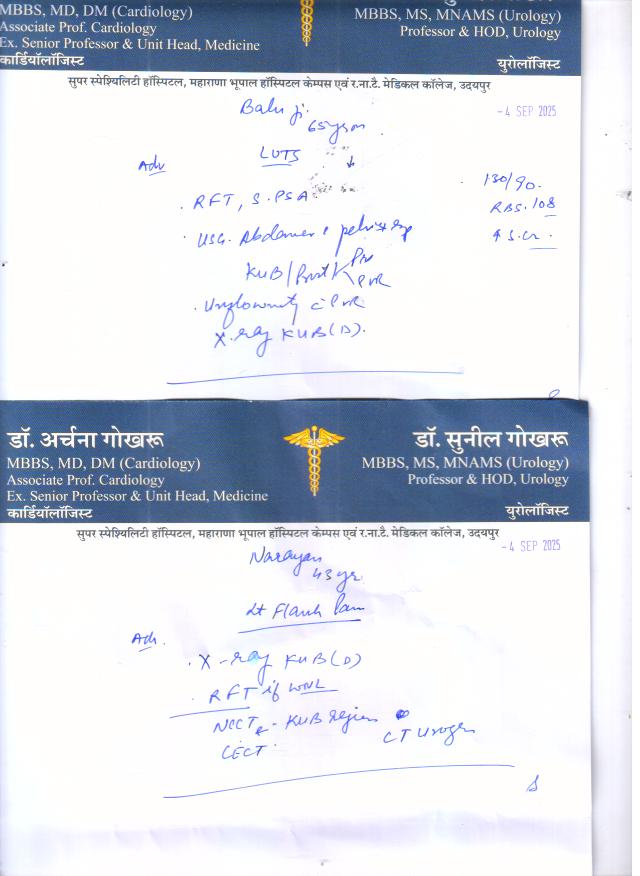 MBBS, MD, DM (Cardiology)
Associate Prof. Cardiology
Ex. Senior Professor & Unit Head, Medicine
कार्डियॉलॉजिस्ट
MBBS, MS, MNAMS (Urology)
Professor & HOD, Urology
यूरोलॉजिस्ट
सुपर स्पेश्यिलिटी हॉस्पिटल, महाराणा भूपाल हॉस्पिटल केम्पस एवं र.ना.टै. मेडिकल कॉलेज, उदयपुर
- 4 SEP 2025
Balu ji
65 yrs m
LUTS
Adv
130/90.
. RFT, S. PSA
RBS. 108
. USG. Abdomen & pelvis
↑ S.Cr.
KUB/Post PVR
. Uroflowmetry c PVR
X-ray KUB (D).
डॉ. अर्चना गोखरू
MBBS, MD, DM (Cardiology)
Associate Prof. Cardiology
Ex. Senior Professor & Unit Head, Medicine
कार्डियॉलॉजिस्ट
डॉ. सुनील गोखरू
MBBS, MS, MNAMS (Urology)
Professor & HOD, Urology
यूरोलॉजिस्ट
सुपर स्पेश्यिलिटी हॉस्पिटल, महाराणा भूपाल हॉस्पिटल केम्पस एवं र.ना.टै. मेडिकल कॉलेज, उदयपुर
- 4 SEP 2025
Narayan
43 yr
Lt Flank Pain
Adv.
. X-ray KUB (D)
. RFT if WNL
NCCT - KUB region
CECT
CT Urogr